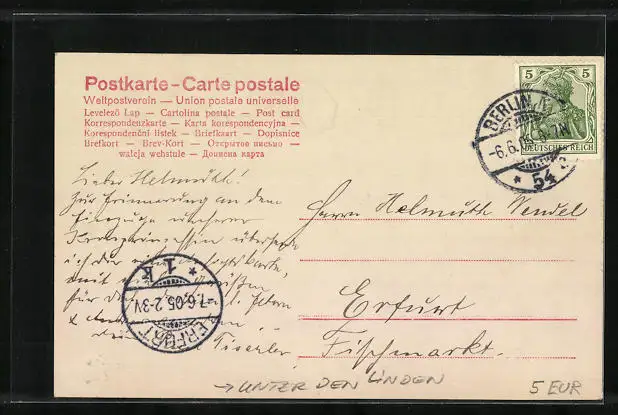 Postkarte – Carte postale
Weltpostverein — Union postale universelle
Levelező Lap — Cartolina postale — Post card
Korrespondenzkarte — Karta korespondencyjna —
Korespondenční lístek — Briefkaart — Dopisnice
Brefkort — Brev-Kort — Открытое письмо —
waleja wehstule — Дописна карта
5 5
DEUTSCHES REICH
BERLIN
-6.6.05. 6-7N
* 54
Lieber Helmuth!
Zur Erinnerung an den
Einzug unserer
Kronprinzessin übersende
ich dir
mit
für
&
Herrn Helmuth Wendel
Erfurt
Fischmarkt.
* 1 k
7.6.05. 2-3V
ERFURT
→ UNTER DEN LINDEN
5 EUR